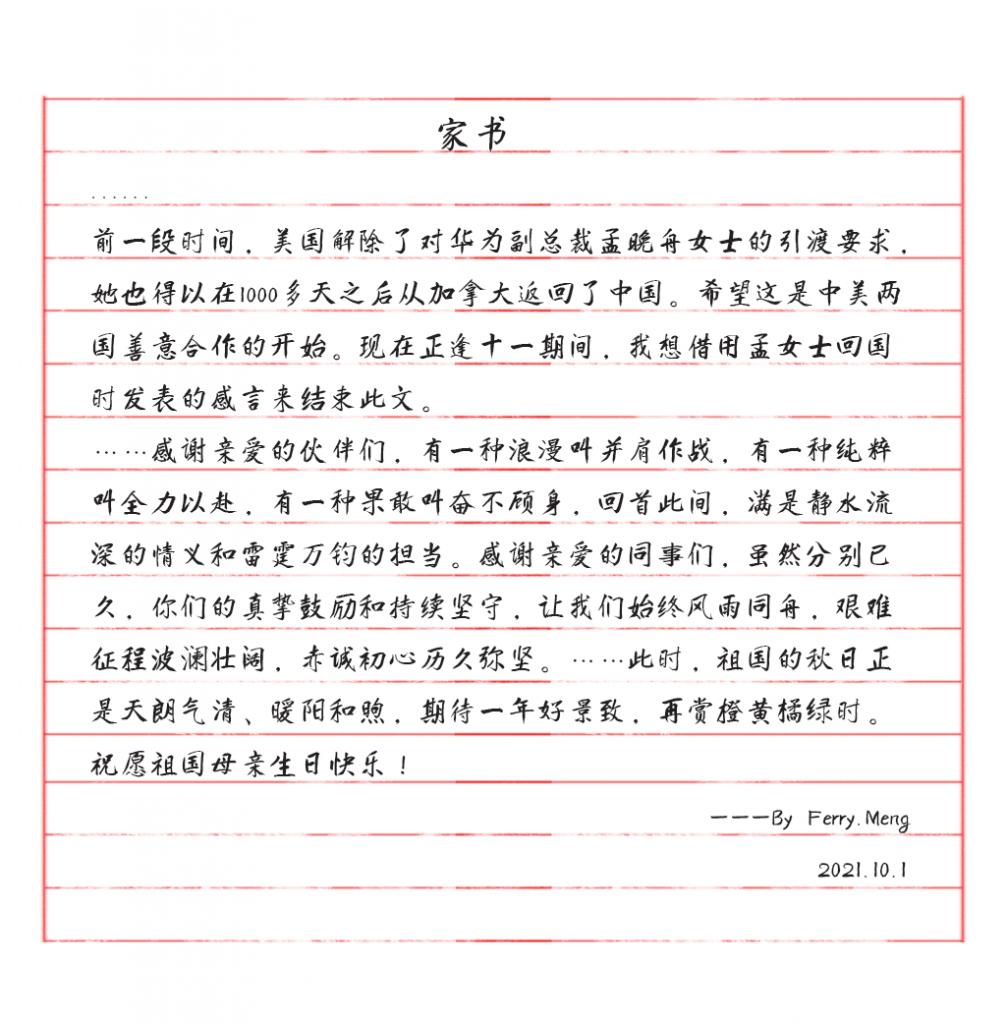 家书
······
前一段时间，美国解除了对华为副总裁孟晚舟女士的引渡要求，
她也得以在1000多天之后从加拿大返回了中国。希望这是中美两
国善意合作的开始。现在正逢十一期间，我想借用孟女士回国
时发表的感言来结束此文。
……感谢亲爱的伙伴们，有一种浪漫叫并肩作战，有一种纯粹
叫全力以赴，有一种果敢叫奋不顾身，回首此间，满是静水流
深的情义和雷霆万钧的担当。感谢亲爱的同事们，虽然分别已
久，你们的真挚鼓励和持续坚守，让我们始终风雨同舟，艰难
征程波澜壮阔，赤诚初心历久弥坚。……此时，祖国的秋日正
是天朗气清、暖阳和煦，期待一年好景致，再赏橙黄橘绿时。
祝愿祖国母亲生日快乐！
———By Ferry.Meng
2021.10.1